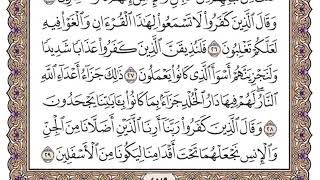 وَقَالَ ٱلَّذِينَ كَفَرُوا۟ لَا تَسْمَعُوا۟ لِهَٰذَا ٱلْقُرْءَانِ وَٱلْغَوْا۟ فِيهِ
لَعَلَّكُمْ تَغْلِبُونَ ٢٦ فَلَنُذِيقَنَّ ٱلَّذِينَ كَفَرُوا۟ عَذَابًا شَدِيدًا
وَلَنَجْزِيَنَّهُمْ أَسْوَأَ ٱلَّذِى كَانُوا۟ يَعْمَلُونَ ٢٧ ذَٰلِكَ جَزَآءُ أَعْدَآءِ ٱللَّهِ
ٱلنَّارُ لَهُمْ فِيهَا دَارُ ٱلْخُلْدِ جَزَآءًۢ بِمَا كَانُوا۟ بِـَٔايَٰتِنَا يَجْحَدُونَ
٢٨ وَقَالَ ٱلَّذِينَ كَفَرُوا۟ رَبَّنَآ أَرِنَا ٱلَّذَيْنِ أَضَلَّانَا مِنَ ٱلْجِنِّ
وَٱلْإِنسِ نَجْعَلْهُمَا تَحْتَ أَقْدَامِنَا لِيَكُونَا مِنَ ٱلْأَسْفَلِينَ ٢٩